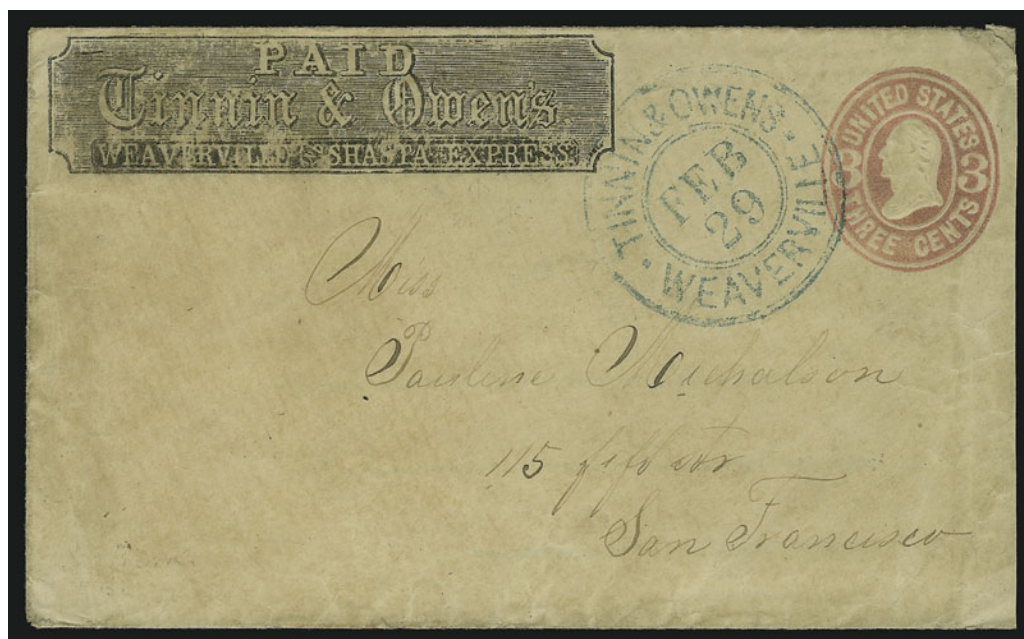 PAID
Tinnin & Owen's.
WEAVERVILLE & SHASTA EXPRESS
TINNIN & OWENS
FEB
29
WEAVERVILLE
UNITED STATES
3 3
THREE CENTS
Miss
Pauline Michalson
115 fifth str
San Francisco